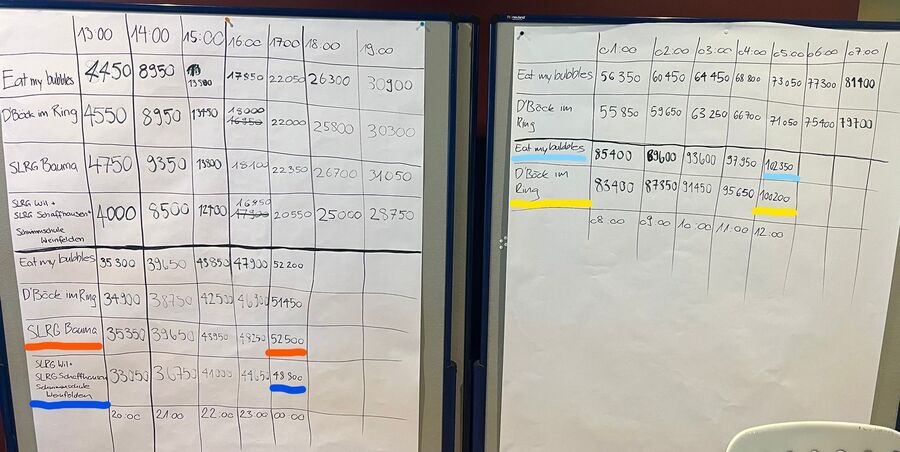 13:00 14:00 15:00 16:00 17:00 18:00 19:00
Eat my bubbles 4450 8950 13500 17850 22050 26300 30900
D'Böck im Ring 4550 8950 13450 18000 22000 25800 30300
SLRG Bauma 4750 9350 13800 18100 22350 26700 31050
SLRG Wil +
SLRG Schaffhausen +
Schwimmschule
Weinfelden
4000 8500 12700 16850 17300 20550 25000 28750
Eat my bubbles 35300 39650 43850 47900 52200
D'Böck im Ring 34900 38750 42500 46900 51450
SLRG Bauma 35350 39650 43950 48250 52500
SLRG Wil +
SLRG Schaffhausen
Schwimmschule
Weinfelden
33050 36750 41000 44650 48.800
20:00 21:00 22:00 23:00 00:00
01:00 02:00 03:00 04:00 05:00 06:00 07:00
Eat my bubbles 56350 60450 64450 68800 73050 77300 81400
D'Böck im
Ring
55850 59650 63250 66700 71050 75400 79700
Eat my bubbles 85400 89600 93600 97950 102350
D'Böck im
Ring
83400 87350 91450 95650 100200
08:00 09:00 10:00 11:00 12:00